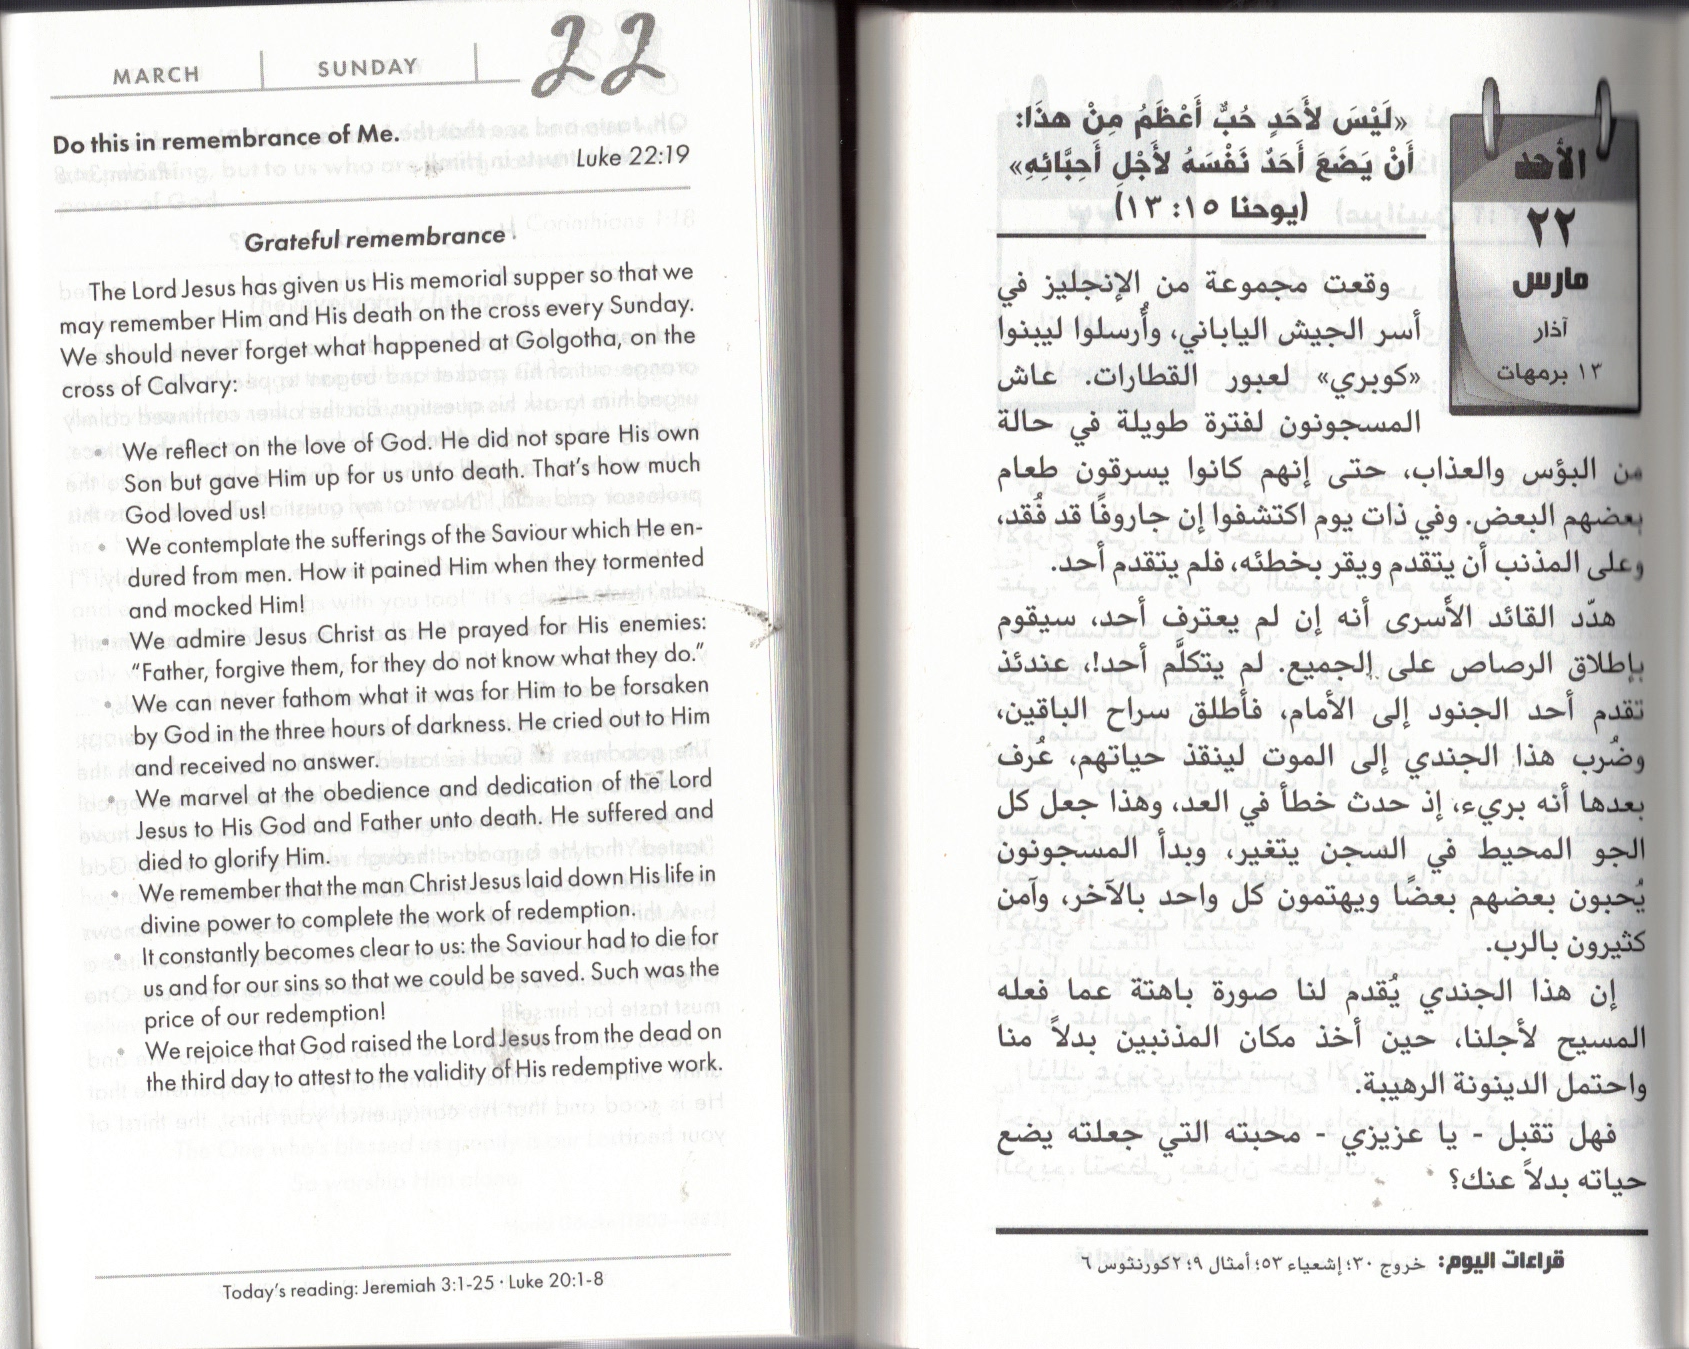 MARCH | SUNDAY 22
Do this in remembrance of Me.
Luke 22:19
Grateful remembrance
The Lord Jesus has given us His memorial supper so that we
may remember Him and His death on the cross every Sunday.
We should never forget what happened at Golgotha, on the
cross of Calvary:
• We reflect on the love of God. He did not spare His own
Son but gave Him up for us unto death. That's how much
God loved us!
• We contemplate the sufferings of the Saviour which He en-
dured from men. How it pained Him when they tormented
and mocked Him!
• We admire Jesus Christ as He prayed for His enemies:
"Father, forgive them, for they do not know what they do."
• We can never fathom what it was for Him to be forsaken
by God in the three hours of darkness. He cried out to Him
and received no answer.
• We marvel at the obedience and dedication of the Lord
Jesus to His God and Father unto death. He suffered and
died to glorify Him.
• We remember that the man Christ Jesus laid down His life in
divine power to complete the work of redemption.
• It constantly becomes clear to us: the Saviour had to die for
us and for our sins so that we could be saved. Such was the
price of our redemption!
• We rejoice that God raised the Lord Jesus from the dead on
the third day to attest to the validity of His redemptive work.
Today's reading: Jeremiah 3:1-25 · Luke 20:1-8
الأحد
٢٢
مارس
آذار
١٣ برمهات
«لَيْسَ لأَحَدٍ حُبٌّ أَعْظَمُ مِنْ هذَا:
أَنْ يَضَعَ أَحَدٌ نَفْسَهُ لأَجْلِ أَحِبَّائِهِ»
(يوحنا ١٥: ١٣)
وقعت مجموعة من الإنجليز في
أسر الجيش الياباني، وأُرسلوا ليبنوا
«كوبري» لعبور القطارات. عاش
المسجونون لفترة طويلة في حالة
من البؤس والعذاب، حتى إنهم كانوا يسرقون طعام
بعضهم البعض. وفي ذات يوم اكتشفوا إن جاروفًا قد فُقد،
وعلى المذنب أن يتقدم ويقر بخطئه، فلم يتقدم أحد.
هدّد القائد الأسرى أنه إن لم يعترف أحد، سيقوم
بإطلاق الرصاص على الجميع. لم يتكلَّم أحد!، عندئذ
تقدم أحد الجنود إلى الأمام، فأطلق سراح الباقين،
وضُرب هذا الجندي إلى الموت لينقذ حياتهم، عُرف
بعدها أنه بريء، إذ حدث خطأ في العد، وهذا جعل كل
الجو المحيط في السجن يتغير، وبدأ المسجونون
يُحبون بعضهم بعضًا ويهتمون كل واحد بالآخر، وآمن
كثيرون بالرب.
إن هذا الجندي يُقدم لنا صورة باهتة عما فعله
المسيح لأجلنا، حين أخذ مكان المذنبين بدلاً منا
واحتمل الدينونة الرهيبة.
فهل تقبل - يا عزيزي - محبته التي جعلته يضع
حياته بدلاً عنك؟
قراءات اليوم: خروج ٣٠؛ إشعياء ٥٣؛ أمثال ٩؛ ٢كورنثوس ٦